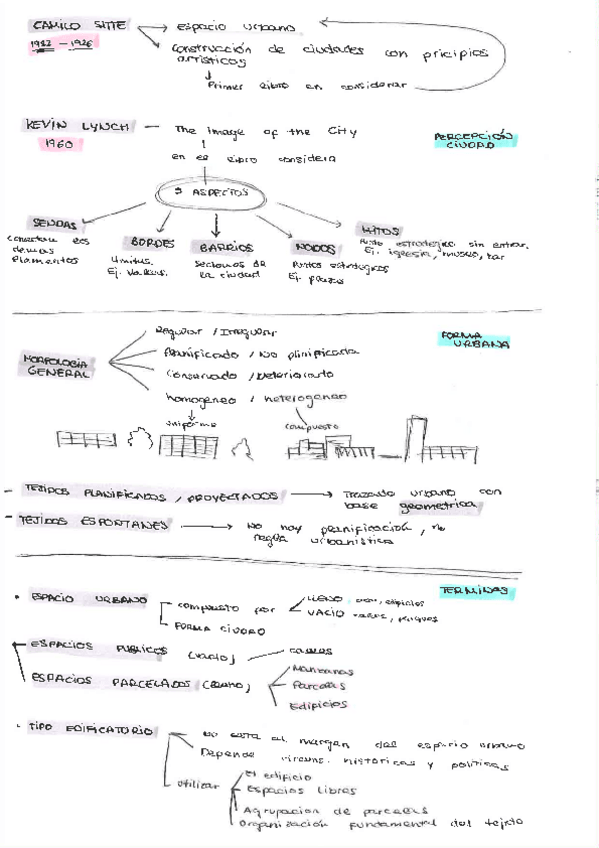 CAMILO SITTE → espacio urbano
construcción de ciudades con pricipios
artisticos
Primer libro en considerar
KEVIN LYNCH — The Image of the City
1960
en el libro considera
PERCEPCIÓN
CIUDAD
5 ASPECTOS
SENDAS
conectan los
demas
elementos
BORDES
Limites.
Ej. Vallas.
BARRIOS
Sectores de
la ciudad
NODOS
Puntos estrategicos
Ej. plazas
HITOS
Punto estrategico sin entrar.
Ej. iglesia, museo, bar
FORMA
URBANA
MORFOLOGIA
GENERAL
Regular / Irregular
Planificado / No plinificada
Conservado / Deteriorado
homogeneo / heterogeneo
uniforme
compuesto
- TEJIDOS PLANIFICADOS / PROYECTADOS → Trazado urbano con
base geometrica
- TEJIDOS ESPONTANES → No hay planificación, no
regla urbanistica
TERMINAS
• ESPACIO URBANO
compuesto por
LLENO edificios
VACIO parques
FORMA CIUDAD
ESPACIOS PUBLICOS (vacio)
calles
ESPACIOS PARCELADOS (lleno)
Manzanas
Parcelas
Edificios
• TIPO EDIFICATORIO
no esta al margen del espacio urbano
Depende circuns. historicas y politicas
utilizar
El edificio
Espacios libres
Agrupacion de parcelas
Organización fundamental del tejido